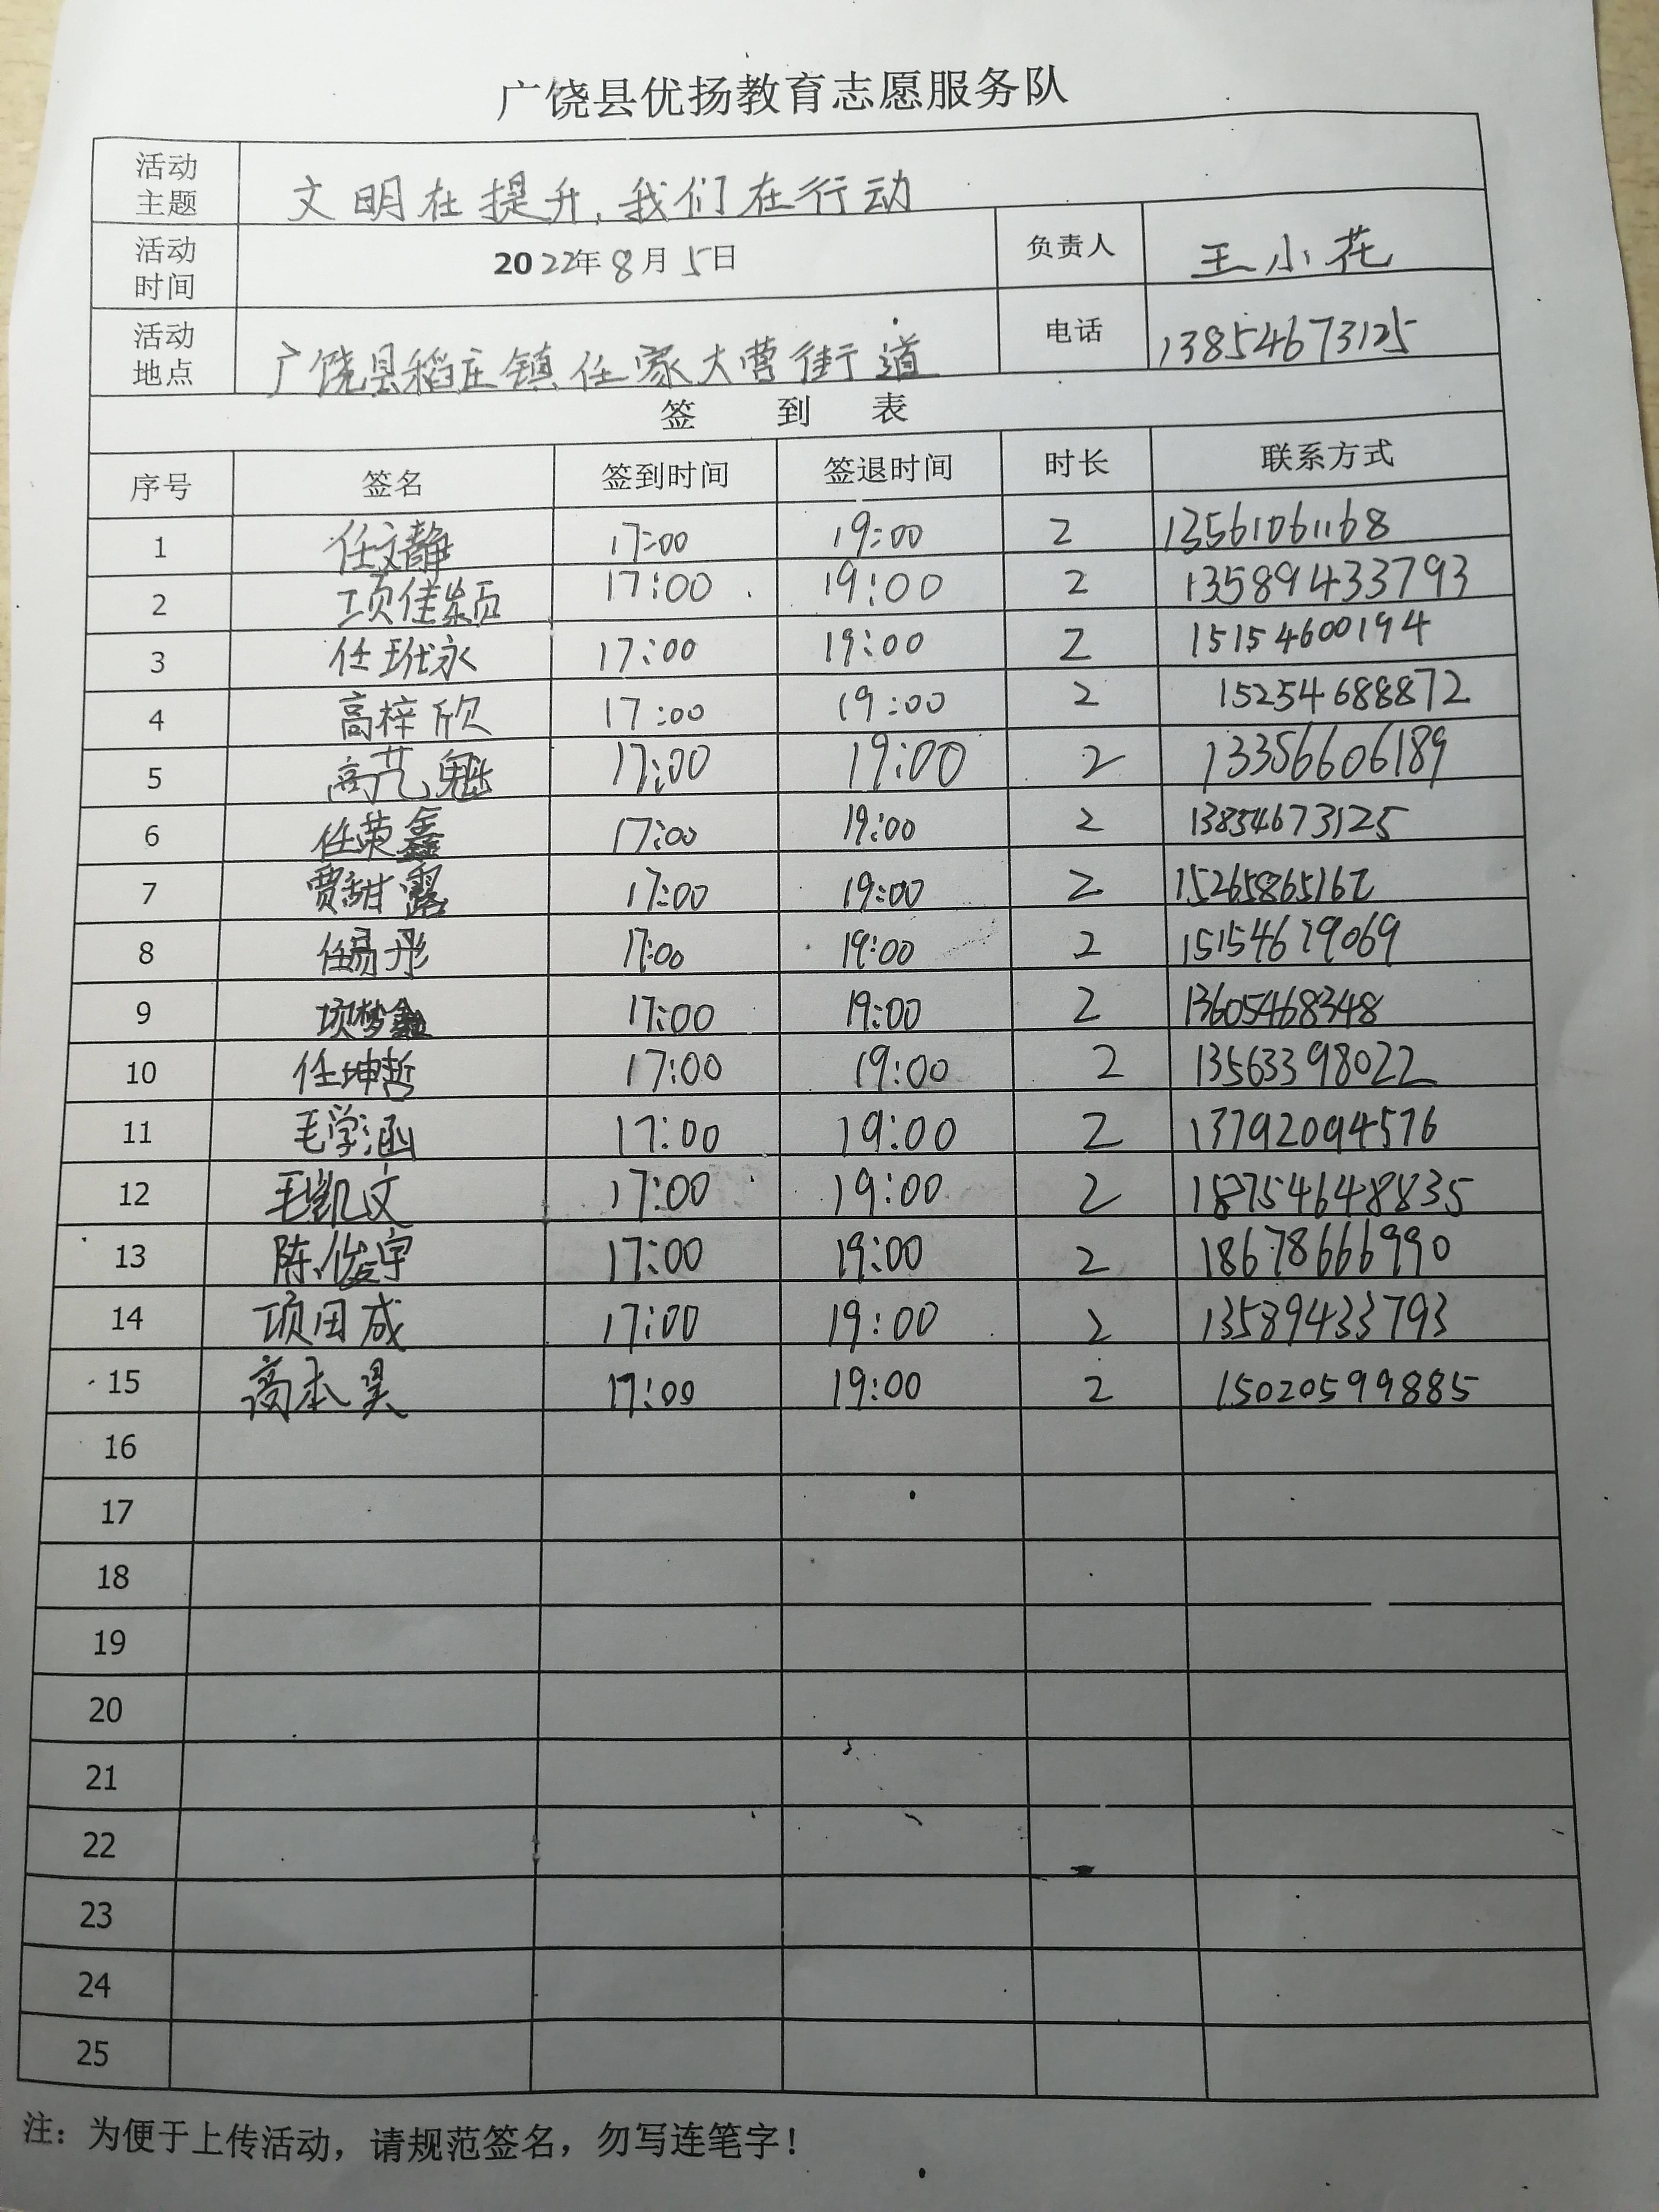 广饶县优扬教育志愿服务队
活动主题 文明在提升，我们在行动
活动时间 2022年8月5日 负责人 王小花
活动地点 广饶县稻庄镇任家大营街道 电话 13854673125
签 到 表
序号 签名 签到时间 签退时间 时长 联系方式
1 任文静 17:00 19:00 2 13561061168
2 项佳颍 17:00 19:00 2 13589433793
3 任玳永 17:00 19:00 2 15154600194
4 高梓欣 17:00 19:00 2 15254688872
5 高艺魁 17:00 19:00 2 13356606189
6 任荣鑫 17:00 19:00 2 13854673125
7 贾甜露 17:00 19:00 2 15265865162
8 任易彤 17:00 19:00 2 15154679069
9 项梦鑫 17:00 19:00 2 13605468348
10 任坤哲 17:00 19:00 2 13563398022
11 毛学涵 17:00 19:00 2 13792094576
12 毛凯文 17:00 19:00 2 18754648835
13 陈俊宇 17:00 19:00 2 18678666990
14 项田成 17:00 19:00 2 13589433793
15 高本昊 17:00 19:00 2 15020599885
16
17
18
19
20
21
22
23
24
25
注：为便于上传活动，请规范签名，勿写连笔字！